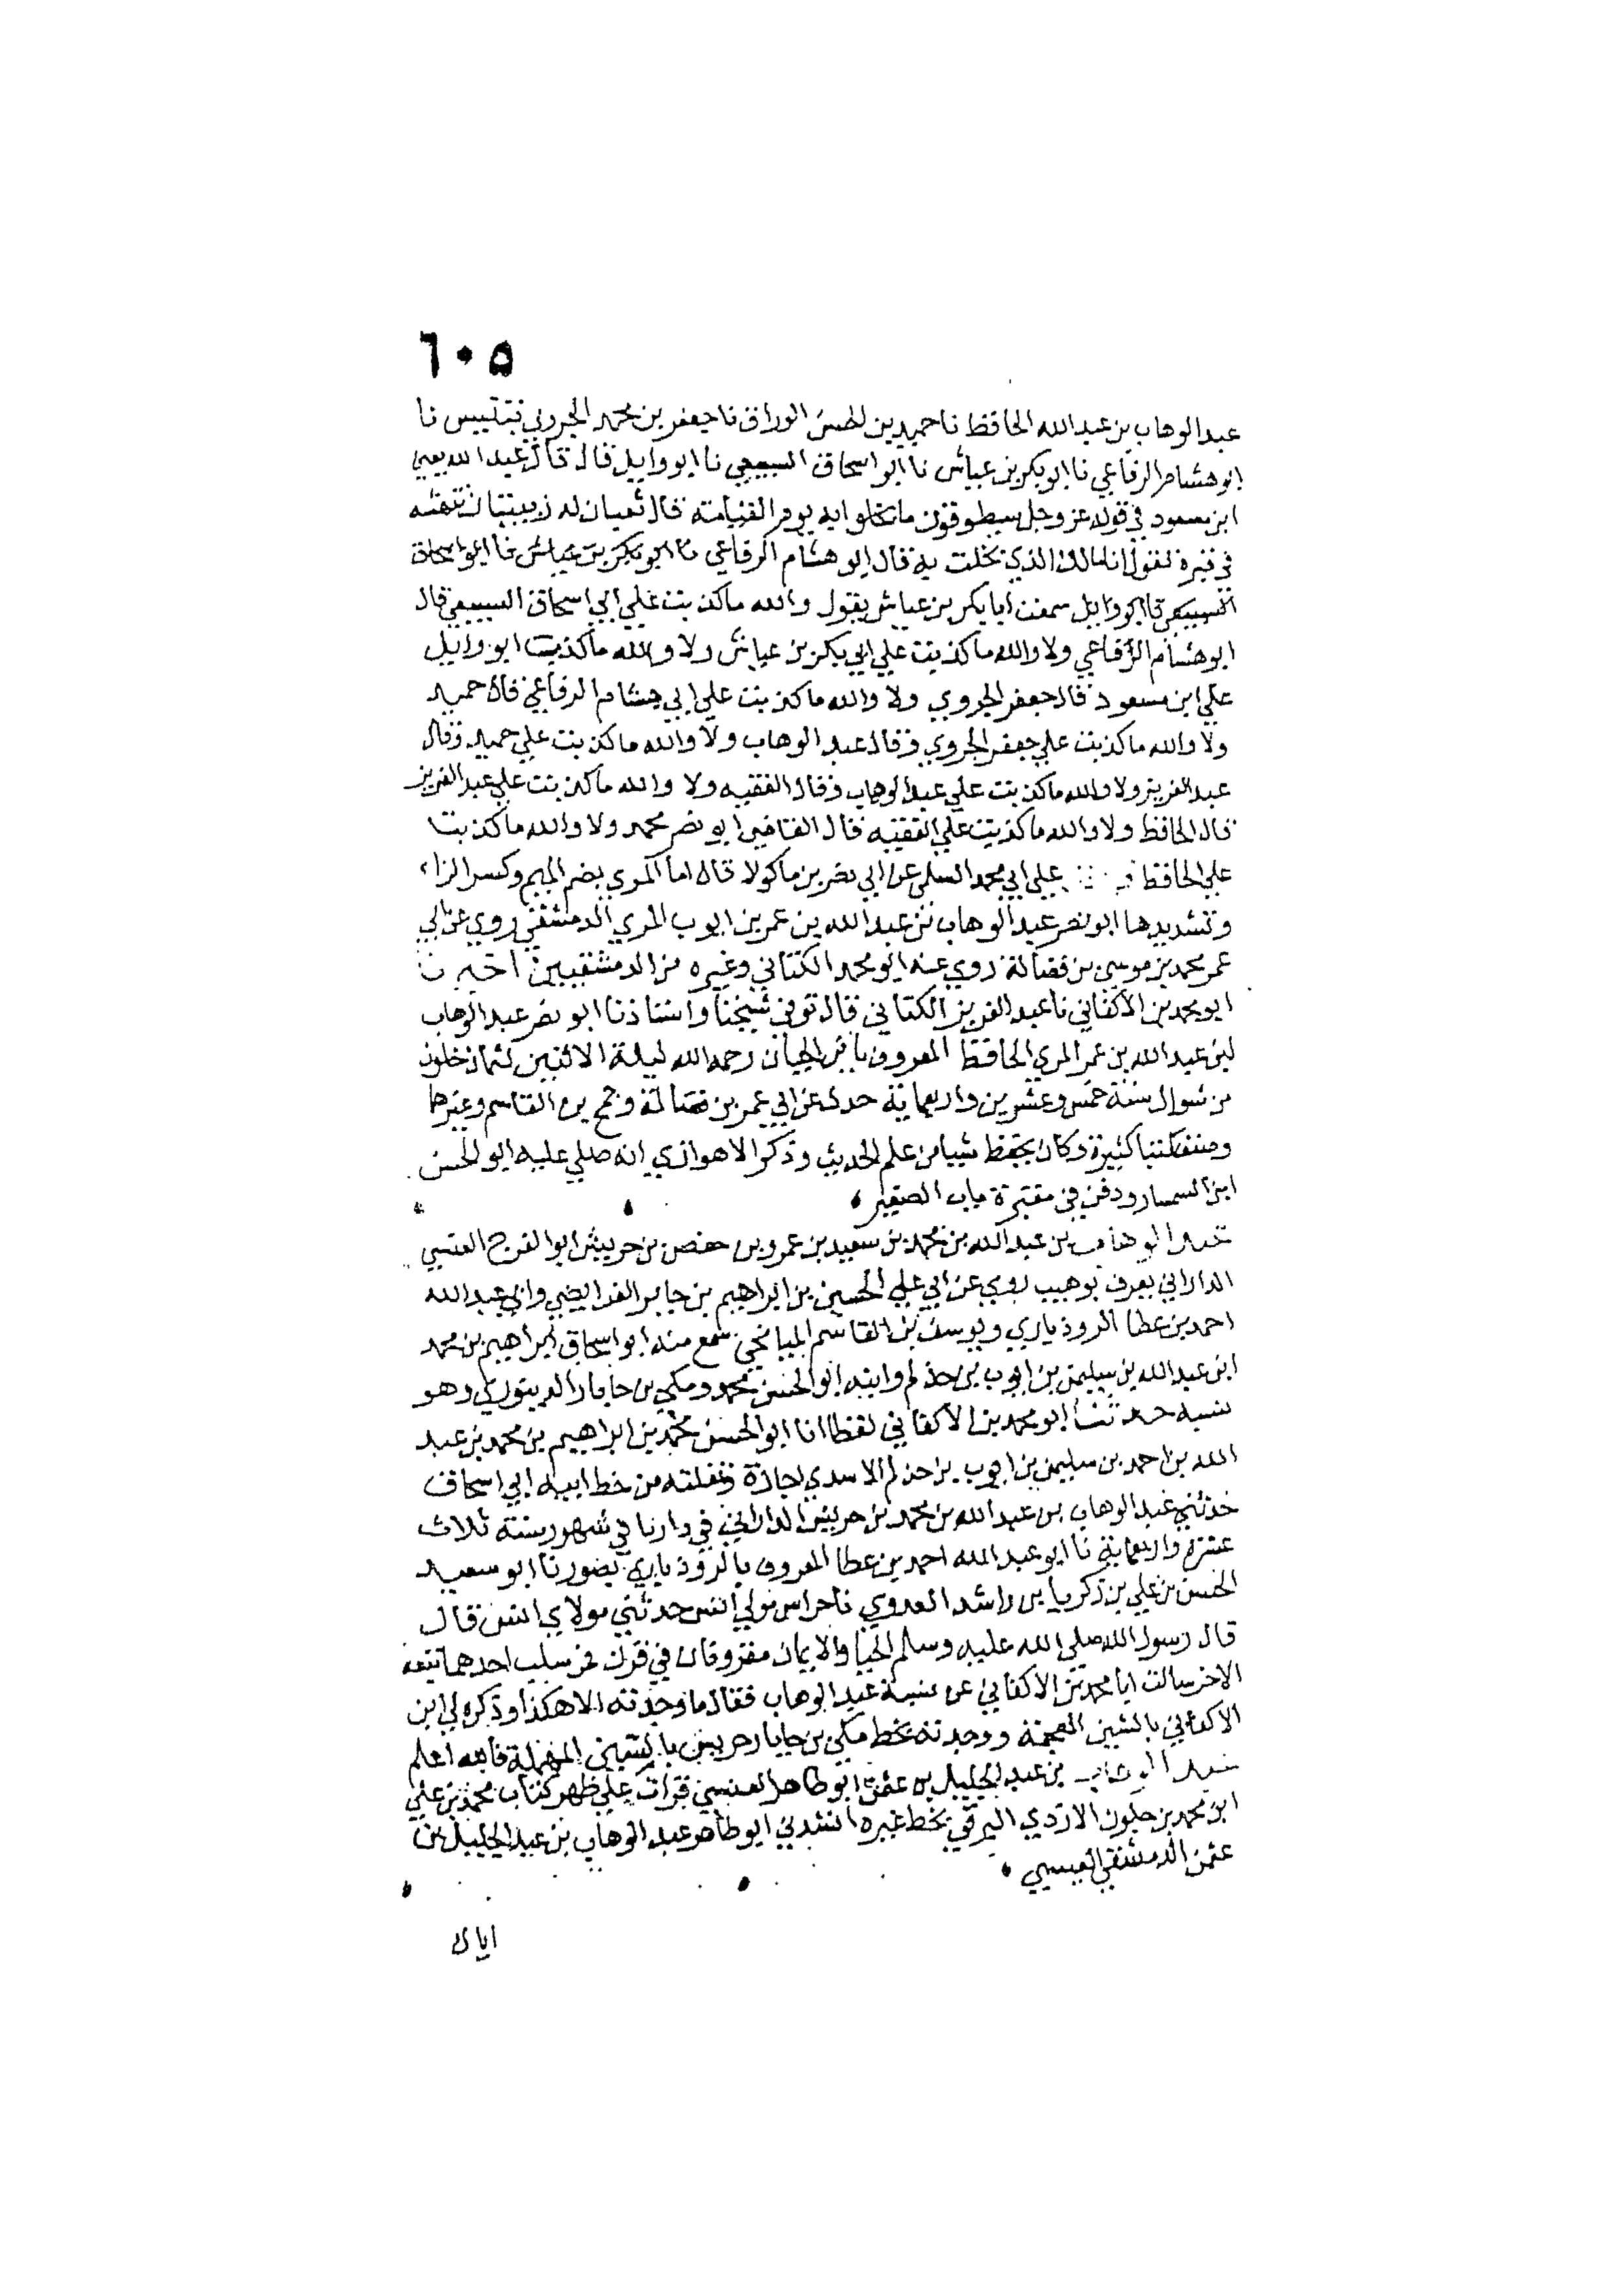 ٦٠٥
عبد الوهاب بن عبد الله الحافظ نا حميد بن الحسن الوراق نا جعفر بن محمد الجروي بتنيس نا
ابو هشام الرفاعي نا ابو بكر بن عياش نا ابو اسحاق السبيعي نا ابو وايل قال قال عبد الله يعني
ابن مسعود في قوله عز وجل سيطوقون ما بخلوا به يوم القيامة قال ثعبان له زبيبتان تنهشه
في قبره تقول انا مالك الذي بخلت به قال ابو هشام الرفاعي نا ابو بكر بن عياش نا ابو اسحاق
السبيعي نا ابو وايل سمعت ابا بكر بن عياش يقول والله ما كذبت علي ابي اسحاق السبيعي قال
ابو هشام الرفاعي ولا والله ما كذبت علي ابي بكر بن عياش ولا والله ما كذبت ابو وايل
علي ابن مسعود قال جعفر الجروي ولا والله ما كذبت علي ابي هشام الرفاعي قال حميد
ولا والله ما كذبت علي جعفر الجروي وقال عبد الوهاب ولا والله ما كذبت علي حميد وقال
عبد العزيز ولا والله ما كذبت علي عبد الوهاب وقال الفقيه ولا والله ما كذبت علي عبد العزيز
قال الحافظ ولا والله ما كذبت علي الفقيه قال القاضي ابو نصر محمد ولا والله ما كذبت
علي الحافظ علي ابي محمد السلمي عن ابي نصر بن ماكولا قال اما المري بضم الميم وكسر الراء
وتشديدها ابو نصر عبد الوهاب بن عبد الله بن عمر بن ايوب المري الدمشقي روي عن ابي
عمر محمد بن موسي بن فضالة روي عنه ابو محمد الكتاني وغيره من الدمشقيين اخبرنا
ابو محمد بن الاكفاني نا عبد العزيز الكتاني قال توفي شيخنا واستاذنا ابو نصر عبد الوهاب
بن عبد الله بن عمر المري الحافظ المعروف بابن الجبان رحمه الله ليلة الاثنين لثمان خلون
من شوال سنة خمس وعشرين واربعماية حدث عن ابي عمر بن فضالة وجمح بن القاسم وغيرهما
وصنف كتبا كثيرة وكان يحفظ شييا من علم الحديث وذكر الاهوازي انه صلي عليه ابو الحسن
ابن السمسار ودفن في مقبرة باب الصغير
عبد الوهاب بن عبد الله بن محمد بن سعيد بن عمرو بن حفص بن حريش ابو الفرج العنسي
الداراني يعرف بوهيب روي عن ابي علي الحسين بن ابراهيم بن جابر الفرايضي وابي عبد الله
احمد بن عطا الروذباري ويوسف بن القاسم الميانجي سمع منه ابو اسحاق ابراهيم بن محمد
ابن عبد الله بن سليمن بن ايوب بن حذلم وابنه ابو الحسن محمد ومكي بن جابار الدينوري وهو
نسبه حدثنا ابو محمد بن الاكفاني لفظا انا ابو الحسن محمد بن ابراهيم بن محمد بن عبد
الله بن احمد بن سليمن بن ايوب بن حذلم الاسدي اجازة ونقلته من خط ابيه ابي اسحاق
حدثني عبد الوهاب بن عبد الله بن محمد بن حريش الداراني في دارنا في شهور سنة ثلاث
عشرة واربعماية نا ابو عبد الله احمد بن عطا المعروف بالروذباري بصور نا ابو سعيد
الحسن بن علي بن زكريا بن راشد العدوي نا خراش مولي انس حدثني مولاي انس قال
قال رسول الله صلي الله عليه وسلم الحيا والايمان مقرونان في قرن فمن سلب احدهما تبعه
الاخر سالت ابا محمد بن الاكفاني عن نسبة عبد الوهاب فقال ما وجدته الا هكذا وذكره لي ابن
الاكفاني بالشين المعجمة ووجدته بخط مكي بن جابار حريس بالسين المهملة فالله اعلم
عبد الوهاب بن عبد الجليل بن عثمن ابو طاهر العنسي قرات علي ظهر كتاب محمد بن علي
ابن محمد بن جلون الازدي البرقي بخط غيره انشدني ابو طاهر عبد الوهاب بن عبد الجليل بن
عثمن الدمشقي العبسي
اياك